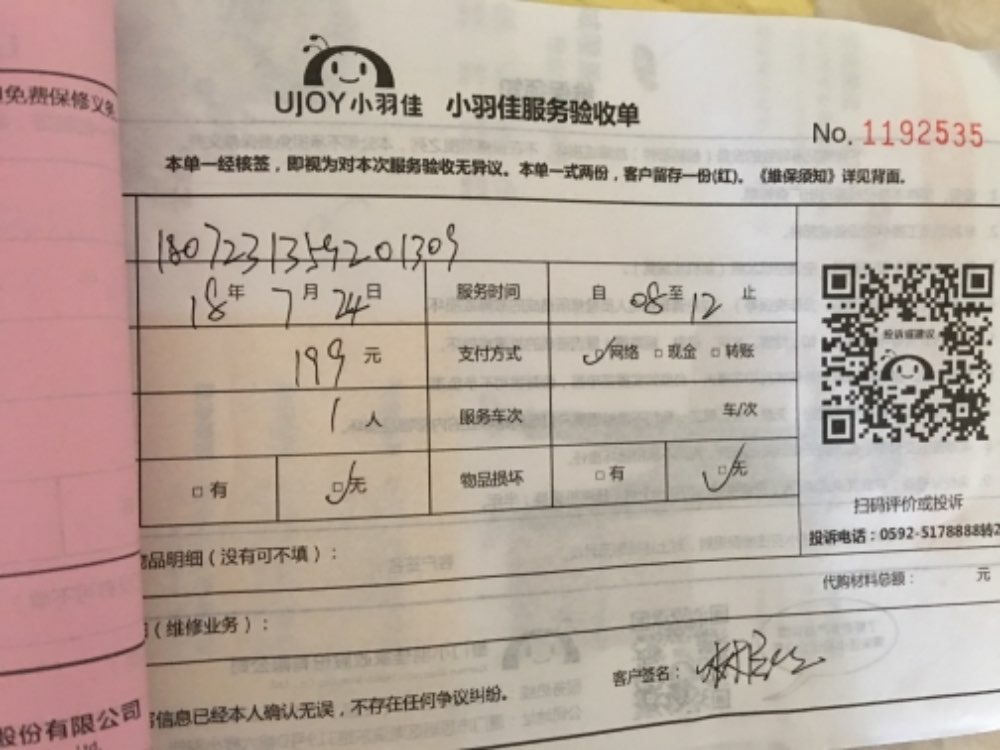 UJOY小羽佳 小羽佳服务验收单
No. 1192535
本单一经核签，即视为对本次服务验收无异议。本单一式两份，客户留存一份(红)。《维保须知》详见背面。
1807231359201309
18年7月24日 服务时间 自08至12止
199元 支付方式 网络 现金 转账
1人 服务车次 车/次
有 无 物品损坏 有 无
投诉或建议
扫码评价或投诉
投诉电话：0592-5178888转2
品明细（没有可不填）：
代购材料总额： 元
（维修业务）：
客户签名：
信息已经本人确认无误，不存在任何争议纠纷。
免费保修义务
股份有限公司